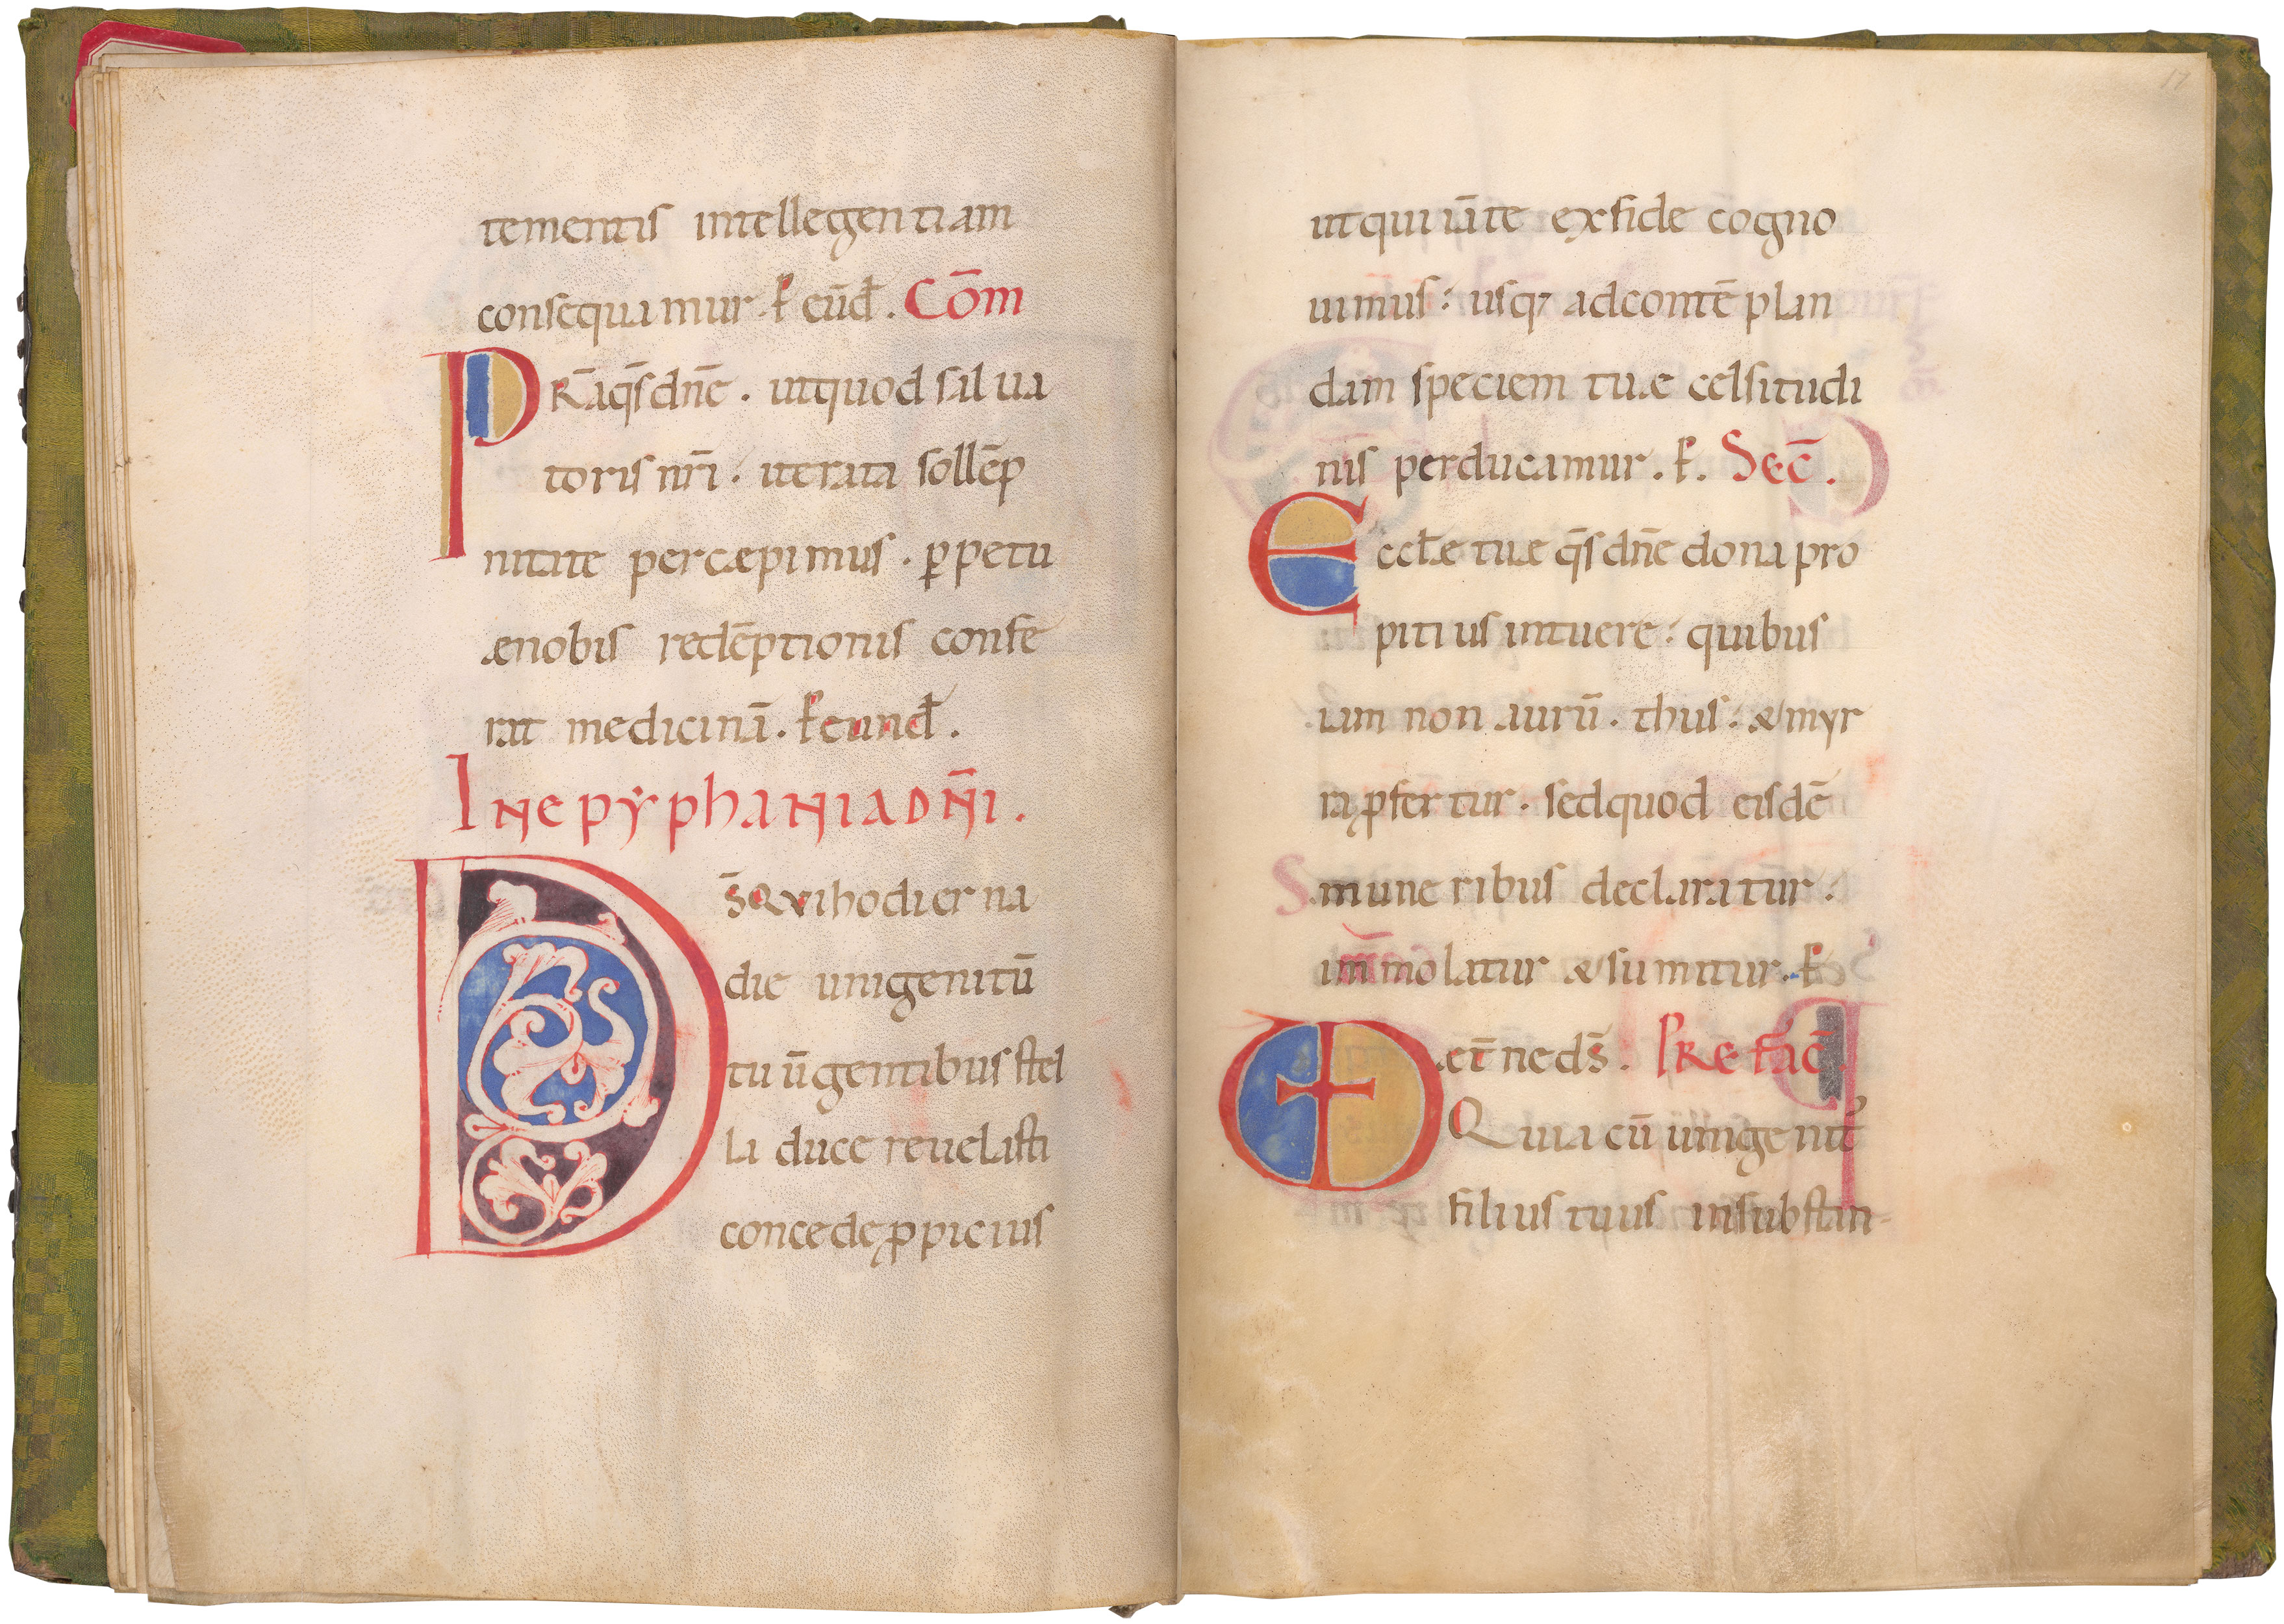 tementis intellegentiam
consequamur. ꝑ eūd. Cōm
PRāq̄s dn̄e. utquod salua
toris nr̄i. iterata sollēp
nitate percæpimus. ꝑpetu
æ nobis redēptionis confe
rat medicinā. ꝑ eund.
In epyphania dn̄i.
Ds̄ qui hodierna
die unigenitū
tuū gentibus stel
la duce reuelasti
concede ꝓpicius
17
utqui iāte exfide cogno
uimus: usq; adcontēplan
dam speciem tuæ celsitudi
nis perducamur. ꝑ. Sec̄.
Eccłæ tuæ q̄s dn̄e dona pro
pitius intuere: quibus
iam non aurū. thus: & myr
ra ꝓfertur. sedquod eisdē
muneribus declaratur:
immolatur & sumitur. ꝑ
æt̄ne ds̄. Prefac̄.
Quia cū unigenit᾿
filius tuus insubstan-